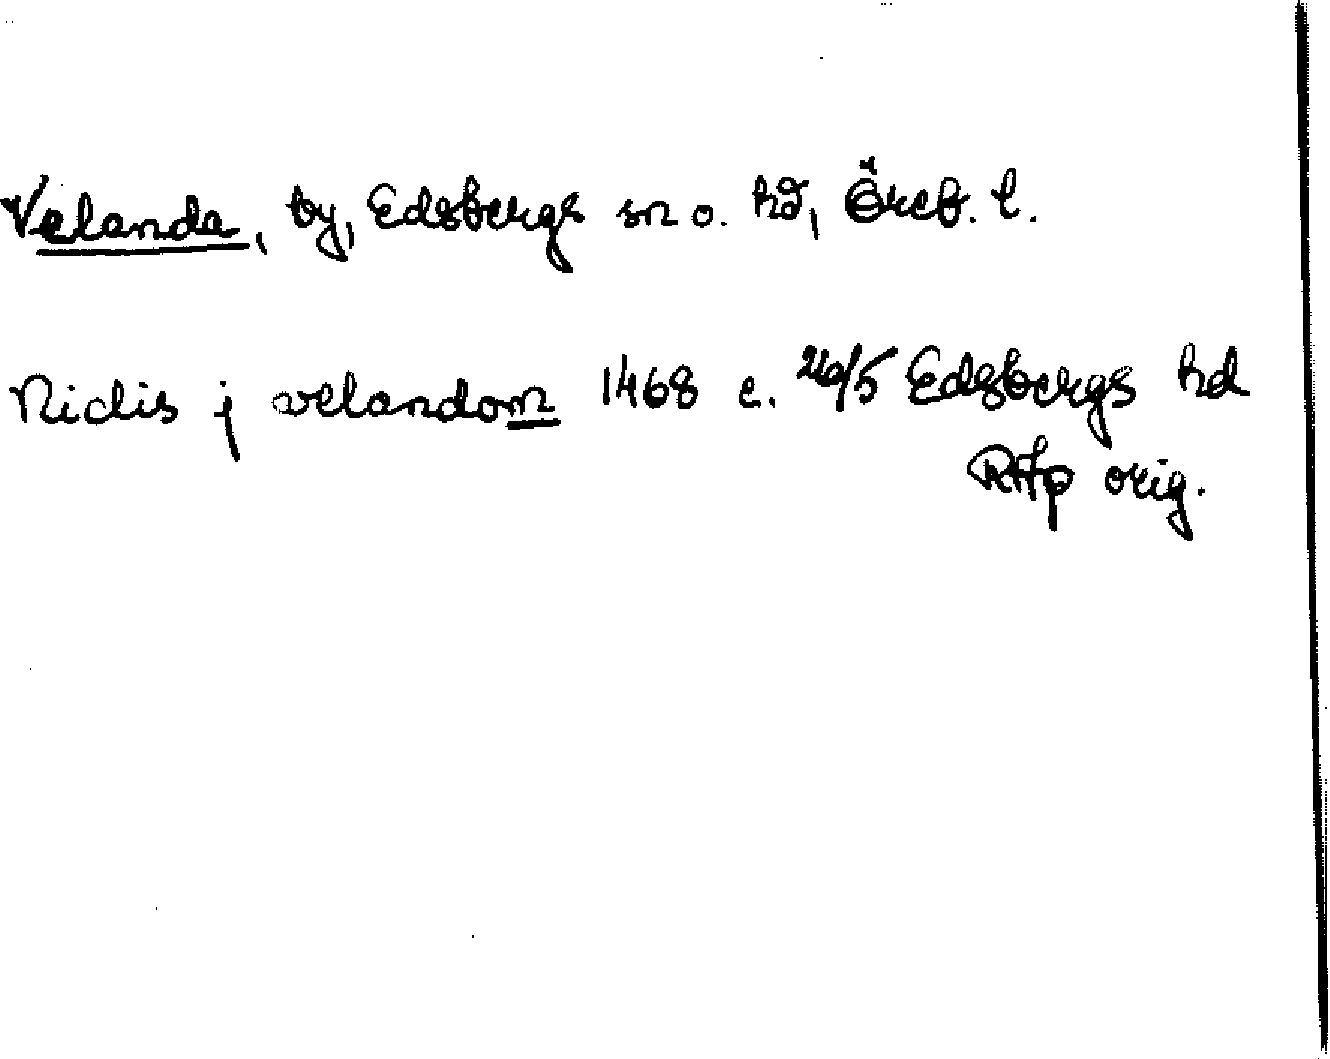 Velanda, by, Edsbergs sn o. hd, Öreb. l.
Niclis j velandom 1468 c. 26/5 Edsbergs hd
RAp orig.